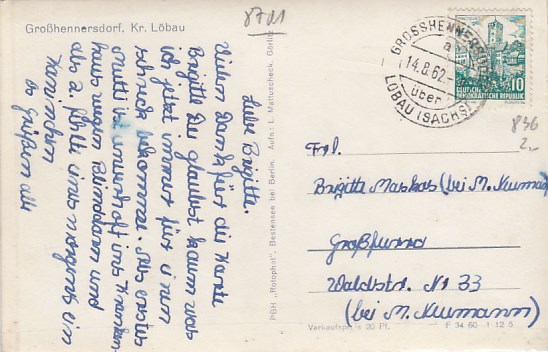 Großhennersdorf, Kr. Löbau
8711
Liebe Brigitte.
Vielen Dank für die Karte
Brigitte du glaubst kaum was
ich jetzt immer für einen
schreck bekomme. Als erstes
mutti ist unverhofft ins Kranken-
haus wegen Blinddarm und
als 2. fehlte uns morgens ein
Kaninchen
es grüßen alle
PGH „Rotophot", Bestensee bei Berlin. Aufn.: L. Mattuscheck, Görlitz
GROSSHENNERSDORF
a
14.8.62
über
LÖBAU (SACHS)
DEUTSCHE
DEMOKRATISCHE REPUBLIK
10
846
2.-
Frl.
Brigitte (bei M. Neumann)
Waldstr. N: 33
(bei M. Neumann)
Verkaufspreis 20 Pf.
F 34 60 1 12 5